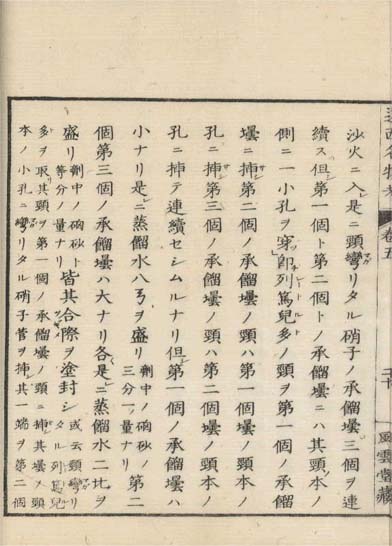 沙火ニ入ㇾ是ニ頭彎リタル硝子ノ承餾壜三個ヲ連
續ス但シ第一個ト第二個トノ承餾壜ニハ其頸ノ本ノ
側ニ一小孔ヲ穿ツ卽列篤兒多ノ頸ヲ第一個ノ承餾
壜ニ挿ミ第二個ノ承餾壜ノ頸ハ第一個ノ壜ノ頸本ノ
孔ニ挿ミ第三個ノ承餾壜ノ頸ハ第二個ノ頸本ノ
孔ニ挿テ連續セシムルナリ但シ第一個ノ承餾壜ハ
小ナリ是ニ蒸餾水八弓ヲ盛リ 劑中ノ硇砂ノ三分一ノ量ナリ 第二
個第三個ノ承餾壜ハ大ナリ各是ニ蒸餾水二比ヲ
盛リ 劑中ノ硇砂ト等分ノ量ナリ 皆其合際ヲ塗封シ 或云頸彎リタル列篤兒
多ヲ取其頸ヲ第一個ノ承餾壜ノ頸ニ挿ミ其壜ノ頸
本ノ小孔ニ彎リタル硝子管ヲ挿ミ其一端ヲ第二個
遠西名物考 卷五
二十
風雲堂藏